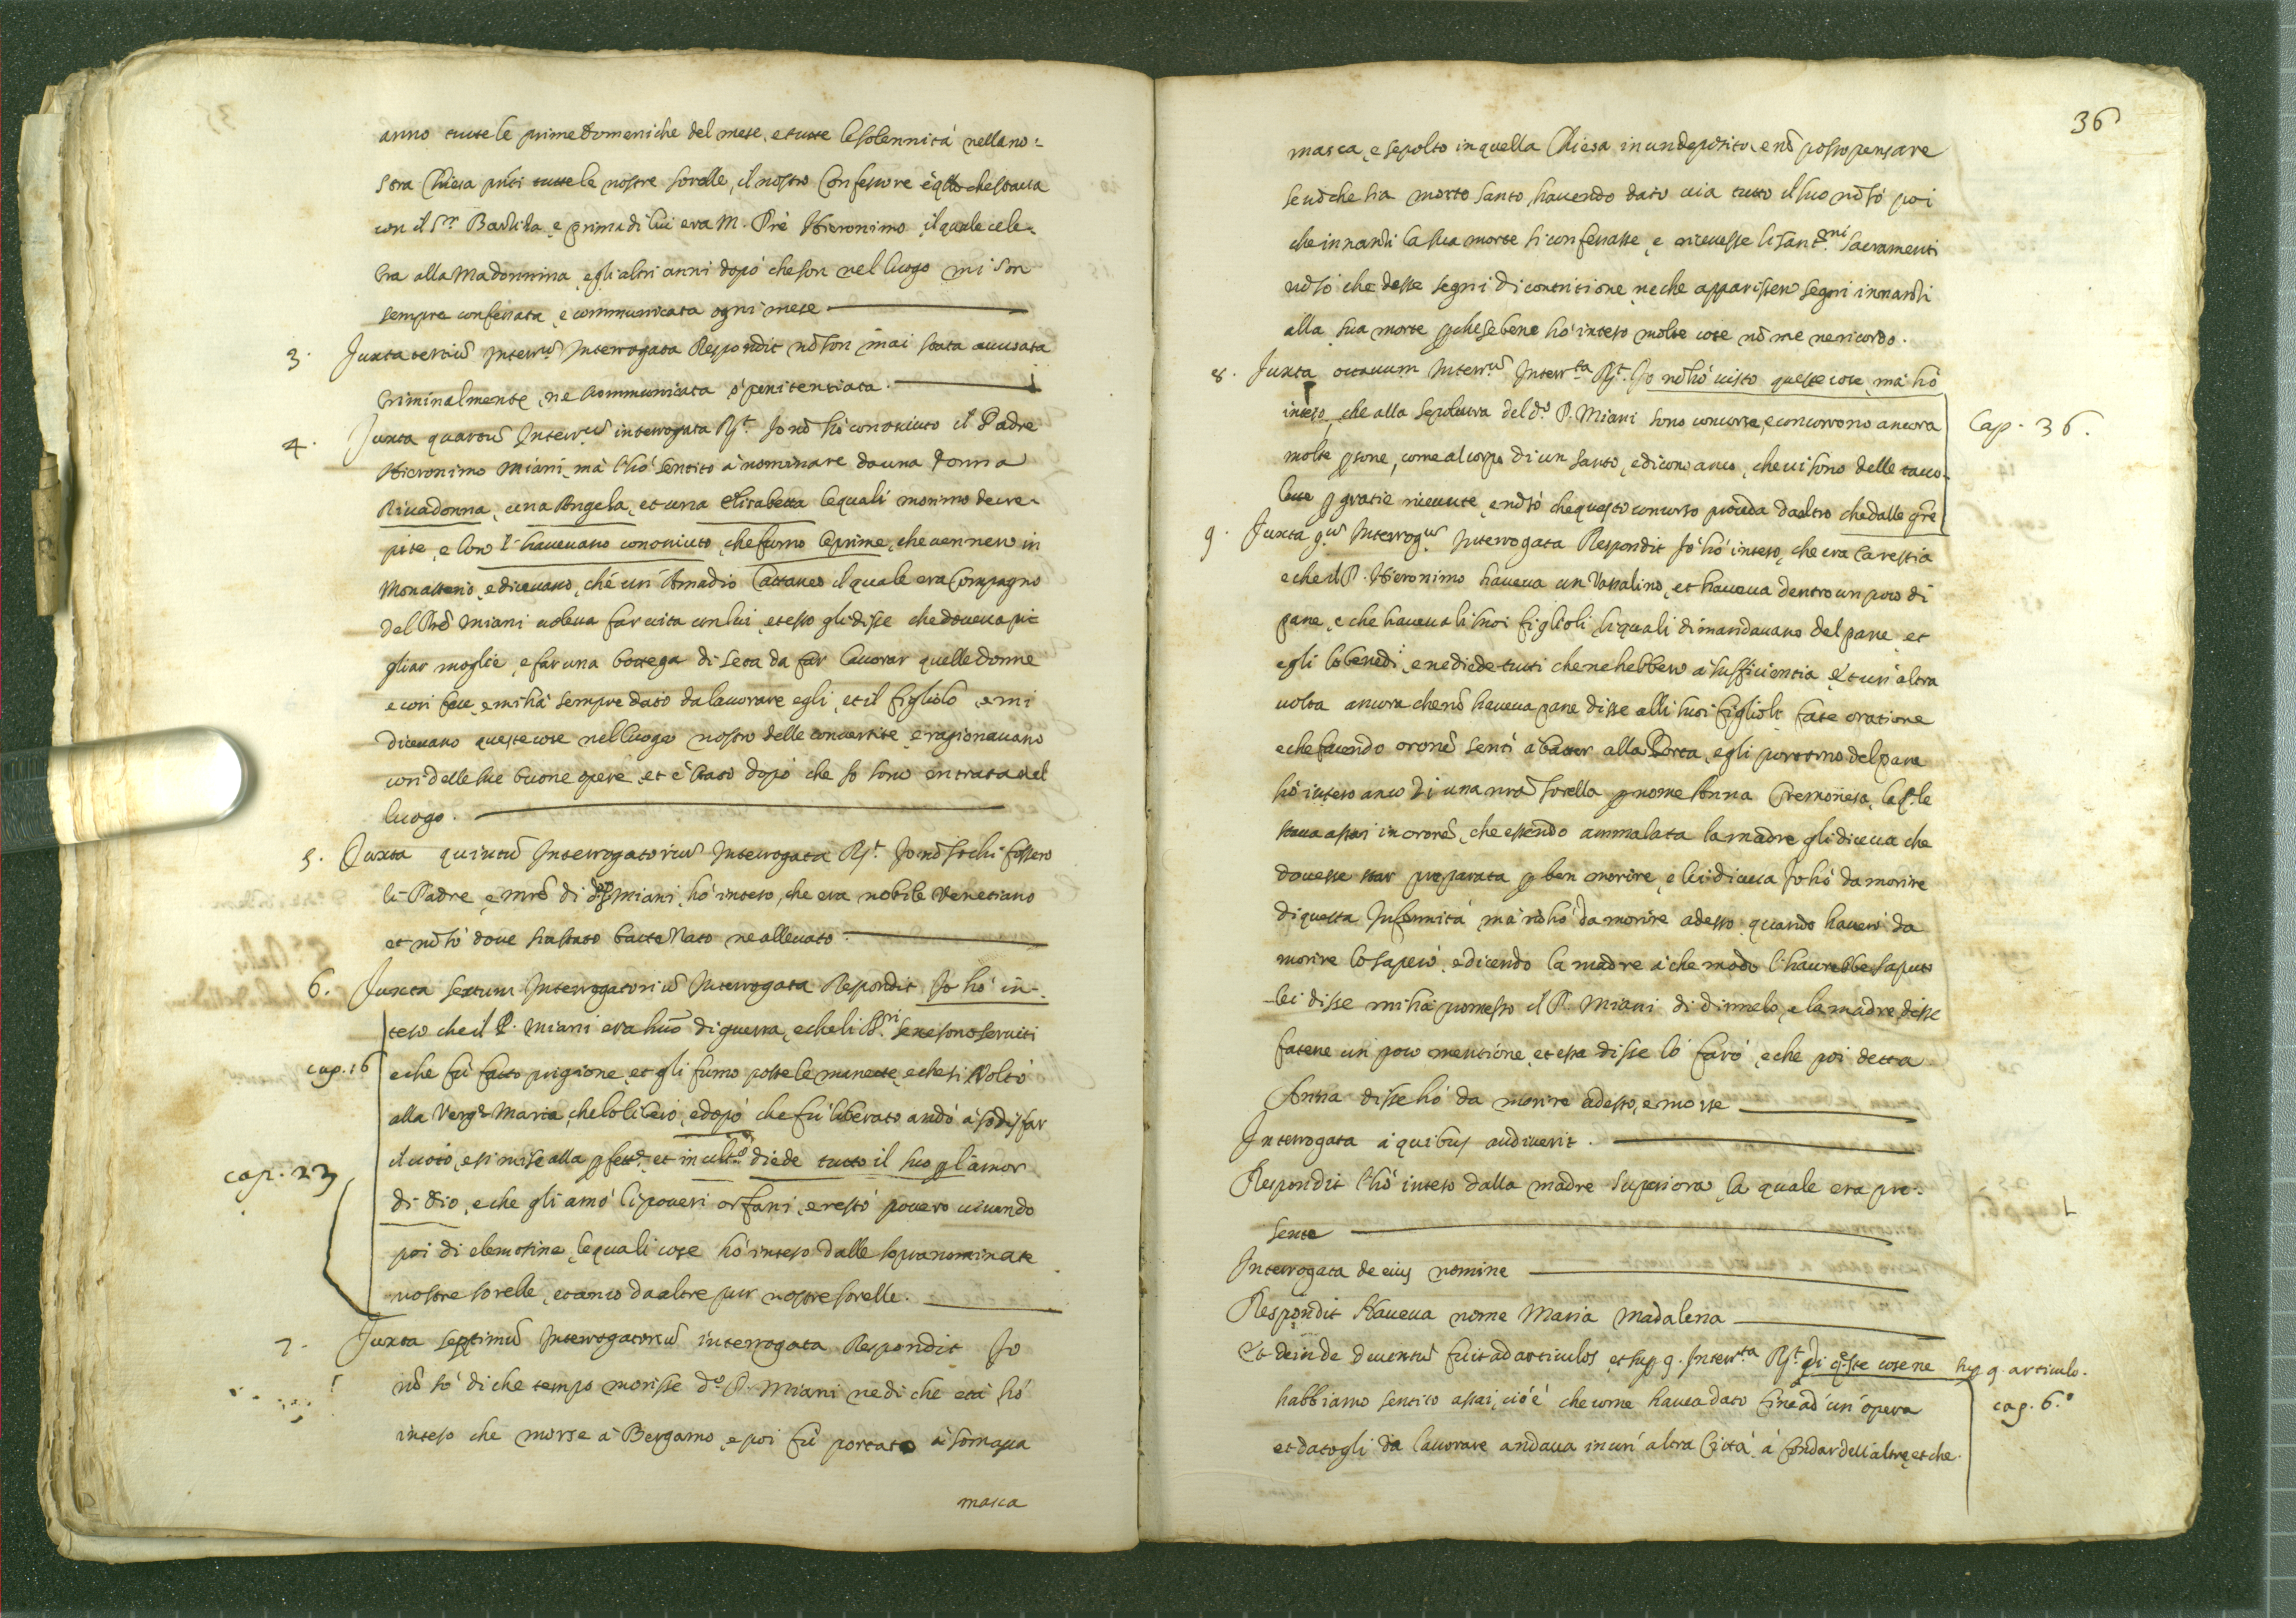 anno tutte le prime Domeniche del mese, et tutte le solennità nella no:
stra Chiesa pñti tutte le nostre sorelle, il nostro Confessore è qllo che staua
con il Sr. Battista, e prima di lui era M. Prè Hieronimo, il quale cele-
bra alla Madonnina, e gli altri anni dopò che son nel luogo mi son
sempre confessata, e communicata ogni mese
3. Juxta tertiũ Interrũ Interrogata Respondit nõ son mai stata accusata
Criminalmente, ne scommunicata ò penitentiata.
4. Juxta quartũ Interrũ interrogata Rt. Jo nõ hò conosciuto il Padre
Hieronimo Miani, mà l'hò sentito à nominare da una donna
Riuadonna, una Angela, et una Elisabetta le quali morirno decre-
pite, e loro l'haueuano conosciuto, che furno le prime, che vennero in
Monasterio, e diceuano, che un Amadio Cattaneo il quale era Compagno
del Prẽ Miani uoleua far uita con lui, et esso gli disse che doueua pi
gliar moglie, e far una bottega di seta da far lauorar quelle donne
e cosi fece, e mi hà sempre dato da lauorare egli, et il figliolo, e mi
diceuano queste cose nel luogo nostro delle conuertite, e ragionauano
cosi delle sue buone opere, et è stato dopò che Jo sono entrata nel
luogo.
5. Juxta quintũ Interrogatoriũ Interrogata Rt. Jo nõ so chi fossero
li Padre, e mrẽ di dº P. Miani, hò inteso, che era nobile Venetiano
et nõ sò doue sia stato batte Nato ne alleuato
6. Juxta sextum Interrogatoriũ Interrogata Respondit Jo hò in-
teso che il P. Miani era huõ di guerra, e che li ssri. se ne sono seruiti
cap. 16
e che fù fatto prigione, et gli furno poste le manette, e che si Voltò
alla Verge Maria, che lo liberò, e dopò che fù liberato andò à sodisfar
il uoto, e si mise alla pfettne. et in ultº diede tutto il suo p l'amor
cap. 23
di Dio, e che gli amò li poueri orfani, e restò pouero uiuendo
poi di elemosine, le quali cose hò inteso dalle sopranominate
nostre sorelle, et anco da altre pur nostre sorelle.
7. Juxta septimũ Interrogatoriũ interrogata Respondit Jo
nõ sò di che tempo morisse dº P. Miani ne di che età hò
inteso che morse à Bergamo, e poi fù portato à Soma
masca
36
masca, e sepolto in quella Chiesa in un deposito, e nõ posso pensare
se nõ che sia morto santo, hauendo dato uia tutto il suo nõ sò poi
che innanti la sua morte si confessasse, e riceuesse li santmi Sacramenti
nõ sò che desse segni di contritione, ne che apparissero segni innanti
alla sua morte pche se bene hò inteso molte cose nõ me ne ricordo.
8. Juxta octauum Interrũ Interrta Rt. Jo nõ hò uisto queste cose, mà hò
inteso, che alla sepoltura del dº P. Miani sono concorse, e concorrono ancora
Cap. 36.
molte psone, come al corpo di un santo, e dicono anco, che ui sono delle tauo-
lette p gratie riceuute, e nõ sò che questo concorso proceda da altro che dalle gre
9. Juxta 9ũ Interrogũ Interrogata Respondit Jo hò inteso, che era Carestia
e che il P. Hieronimo haueua un Vassalino, et haueua dentro un poco di
pane, e che haueua li suoi figlioli, li quali dimandauano del pane, et
egli lo benedì, e ne diede tutti che ne hebbero à sufficientia, et un'altra
uolta ancora che nõ haueua pane disse alli suoi figlioli fate oratione
e che facendo oronẽ sentì à batter alla Porta, e gli portorno del pane
hò inteso anco di una nrã sorella p nome Anna Cremonesa, la qle
staua assai in oronẽ, che essendo ammalata la madre gli diceua che
douesse star preparata p ben morire, e lei diceua Jo hò da morire
di questa Infermità mà nõ hò da morire adesso quando hauerò da
morire lo saperò, e dicendo la madre à che modo l'haurebbe saputo
lei disse mi hà promesso il P. Miani di dirmelo, e la madre disse
fatene un poco mentione, et essa disse lo farò, e che poi detta
Anna disse hò da morire adesso, e morse
Interrogata à quibus audiuerit.
Respondit l'hò inteso dalla madre Superiora, la quale era pre:
sente
Interrogata de eius nomine
Respondit Haueua nome Maria Madalena
Et deinde deuentũ fuit ad articulos, et sup 9. Interrta Rt. di qste cose ne
sup 9. articulo.
habbiamo sentito assai, cioè che come hauea dato fine ad un' opera
cap. 6.º
et datogli da lauorare andaua in un'altra Città à fondar dell'altre, et che